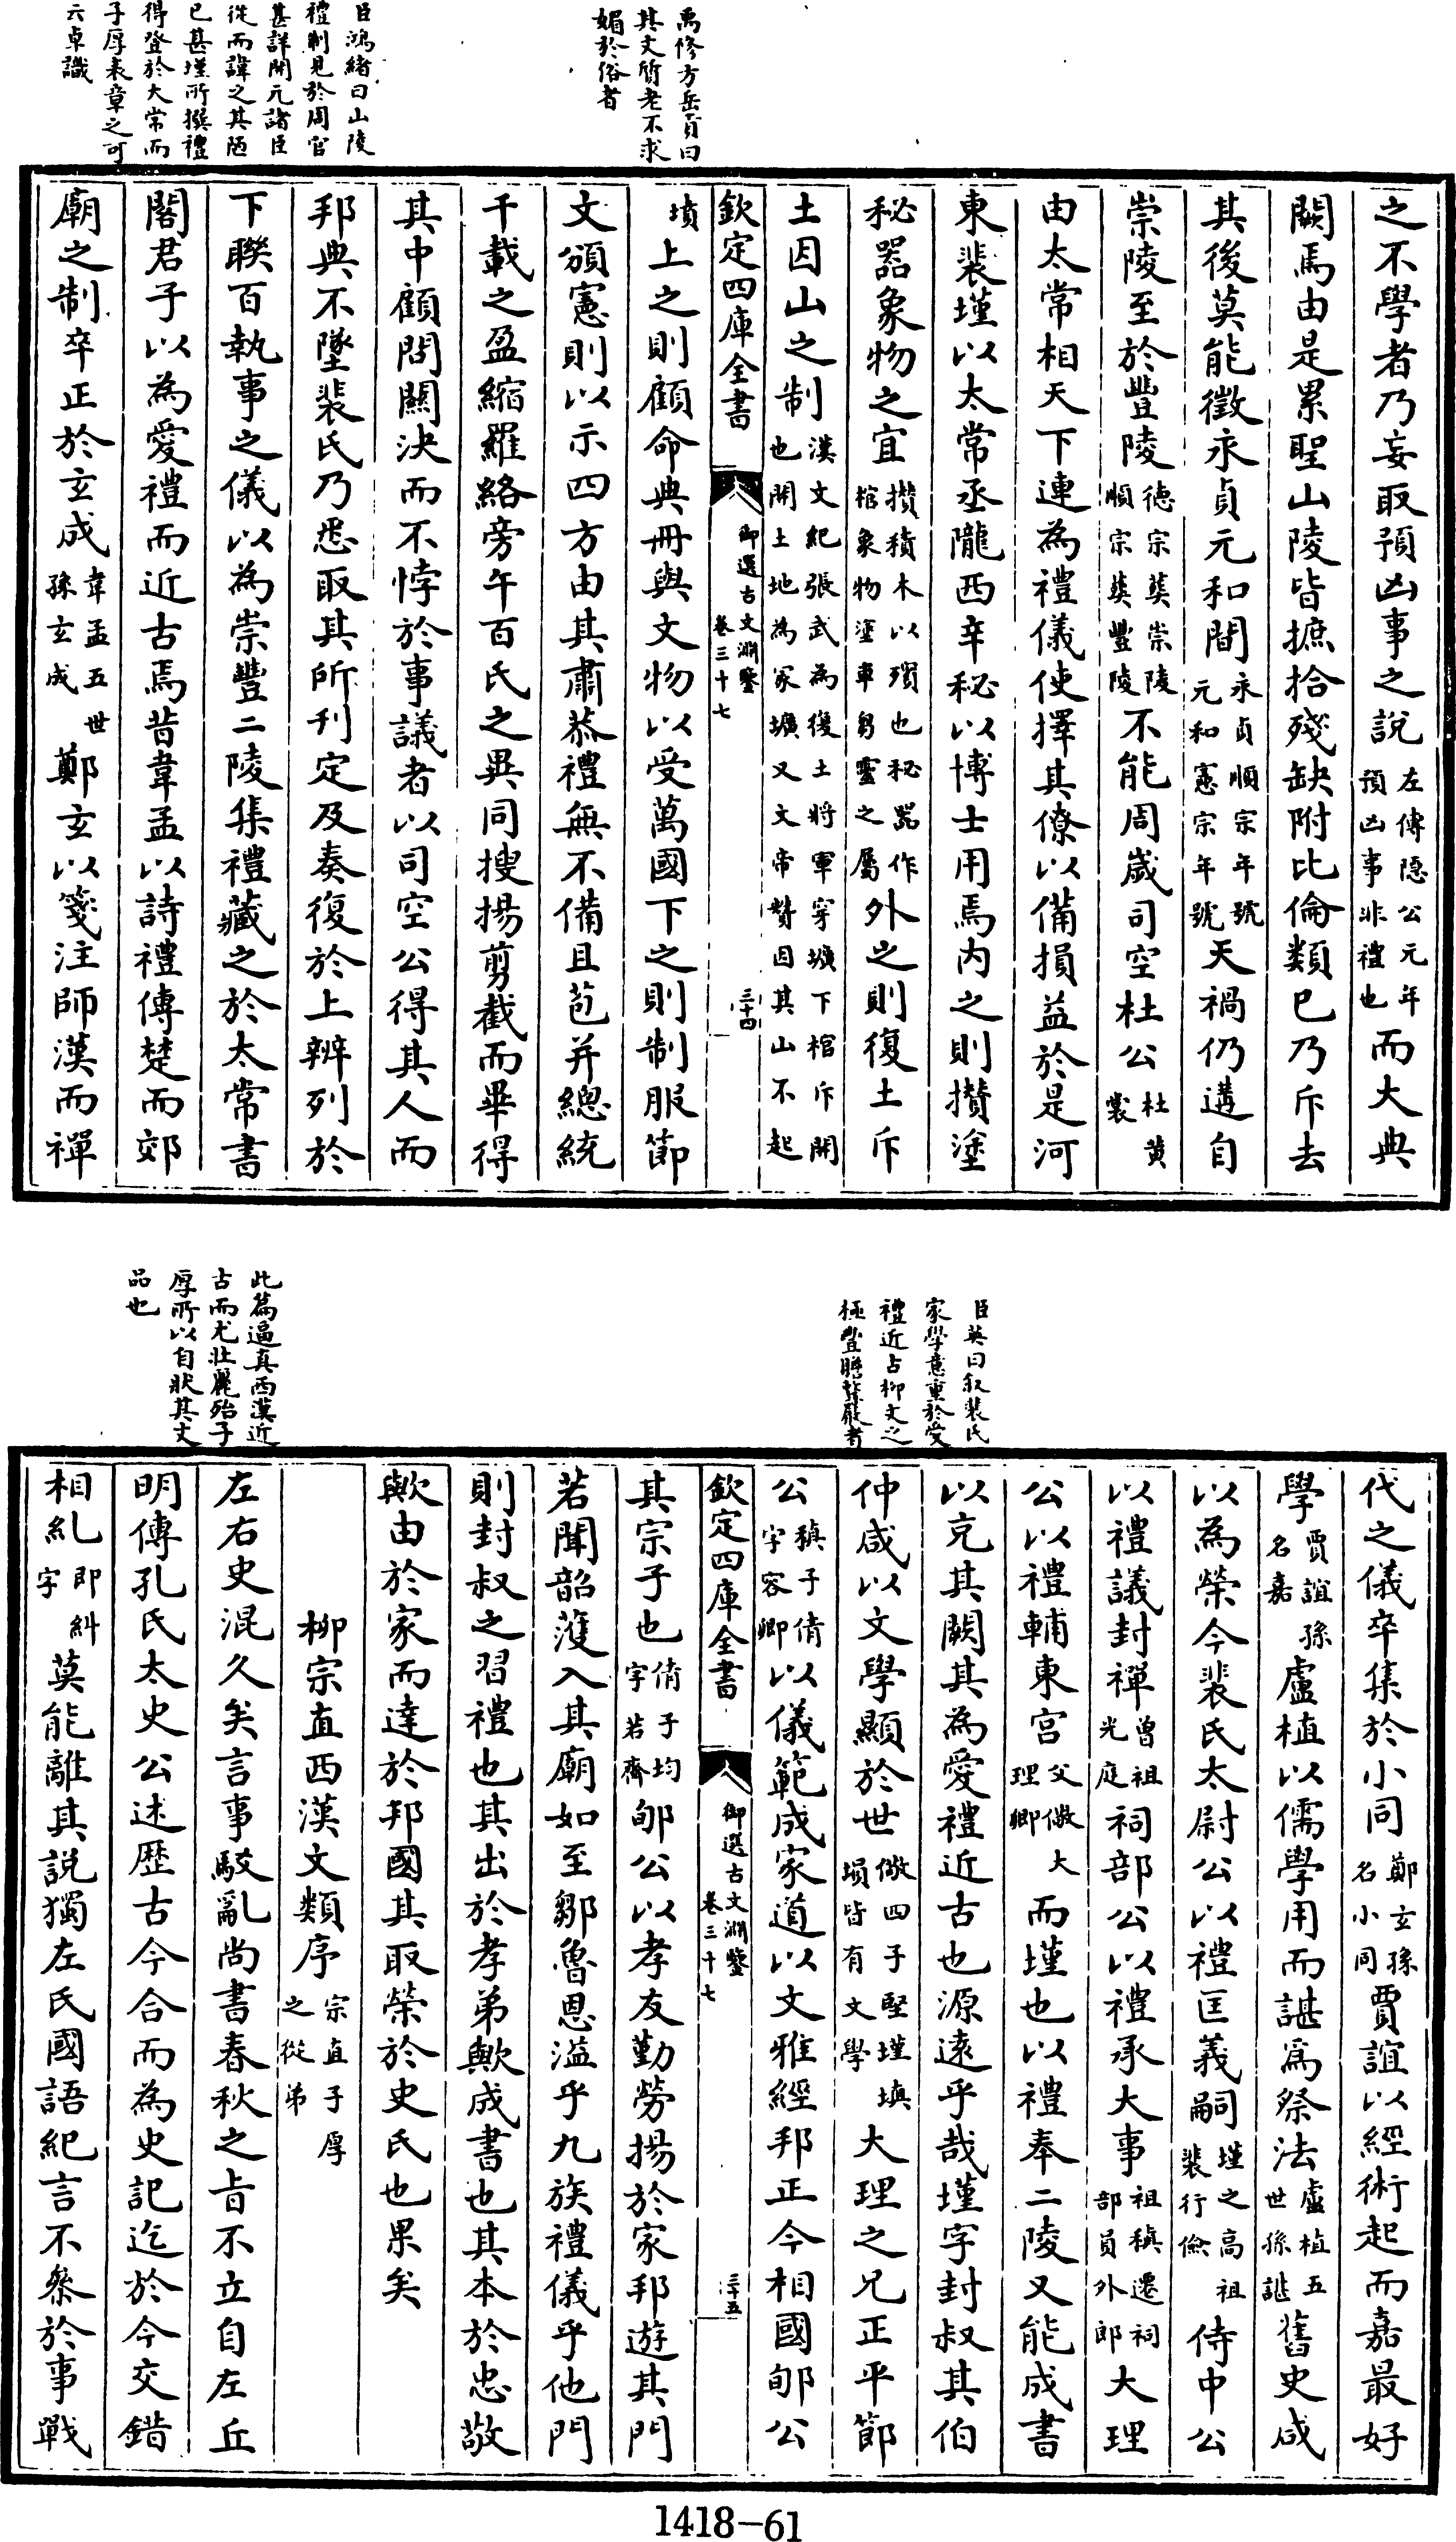 禹修方岳貢曰
其文質老不求
媚於俗者
臣鴻緒曰山陵
禮制見於周官
甚詳開元諸臣
從而諱之其陋
已甚瑾所撰禮
得登於太常而
子厚表章之可
六卓識
之不學者乃妄取預凶事之說左傳隱公元年預凶事非禮也而大典
闕焉由是累聖山陵皆摭拾殘缺附比倫類已乃斥去
其後莫能徵永貞元和間永貞順宗年號元和憲宗年號天禍仍遘自
崇陵至於豐陵德宗葬崇陵順宗葬豐陵不能周歲司空杜公杜黃裳
由太常相天下連為禮儀使擇其僚以備損益於是河
東裴瑾以太常丞隴西辛秘以博士用焉內之則攢塗
秘器象物之宜攢積木以殯也秘器作棺象物塗車芻靈之屬外之則復土斥
土因山之制漢文紀張武為復土將軍穿壙下棺斥開也開土地為冢壙又文帝贊因其山不起
欽定四庫全書 御選古文淵鑒 卷三十七 三十四
墳上之則顧命典冊與文物以受萬國下之則制服節
文頒憲則以示四方由其肅恭禮無不備且苞并總統
千載之盈縮羅絡旁午百氏之異同搜揚剪截而畢得
其中顧問關決而不悖於事議者以司空公得其人而
邦典不墜裴氏乃悉取其所刊定及奏復於上辨列於
下聯百執事之儀以為崇豐二陵集禮藏之於太常書
閣君子以為愛禮而近古焉昔韋孟以詩禮傳楚而郊
廟之制卒正於玄成韋孟五世孫玄成鄭玄以箋注師漢而禪
臣英曰叙裴氏
家學意重於愛
禮近古柳文之
極豐贍謹嚴者
此篇逼真西漢近
古而尤壯麗殆子
厚所以自狀其文
品也
代之儀卒集於小同鄭玄孫名小同賈誼以經術起而嘉最好
學賈誼孫名嘉盧植以儒學用而諶為祭法盧植五世孫諶舊史咸
以為榮今裴氏太尉公以禮匡義嗣瑾之高祖裴行儉侍中公
以禮議封禪曾祖光庭祠部公以禮承大事祖稹遷祠部員外郎大理
公以禮輔東宮父儆大理卿而瑾也以禮奉二陵又能成書
以克其闕其為愛禮近古也源遠乎哉瑾字封叔其伯
仲咸以文學顯於世儆四子堅瑾塤塤皆有文學大理之兄正平節
公稹子倩字容卿以儀範成家道以文雅經邦正今相國郇公
欽定四庫全書 御選古文淵鑒 卷三十七 三十五
其宗子也倩子均字若齊郇公以孝友勤勞揚於家邦遊其門
若聞韶濩入其廟如至鄒魯恩溢乎九族禮儀乎他門
則封叔之習禮也其出於孝弟歟成書也其本於忠敬
歟由於家而達於邦國其取榮於史氏也果矣
柳宗直西漢文類序宗直子厚之從弟
左右史混久矣言事駮亂尚書春秋之旨不立自左丘
明傳孔氏太史公述歷古今合而為史記迄於今交錯
相糺即糾字莫能離其說獨左氏國語紀言不參於事戰
1418-61